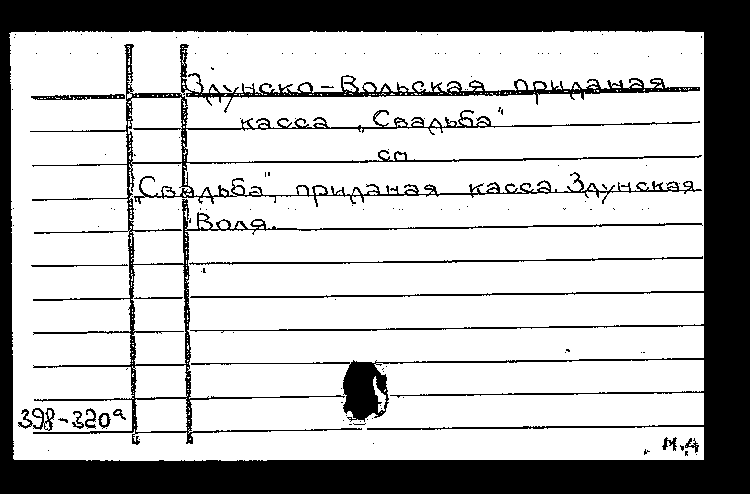 Здунско-Вольская приданая
касса „Свадьба"
см
„Свадьба", приданая касса. Здунская
Воля.
398-320ª
М.Д